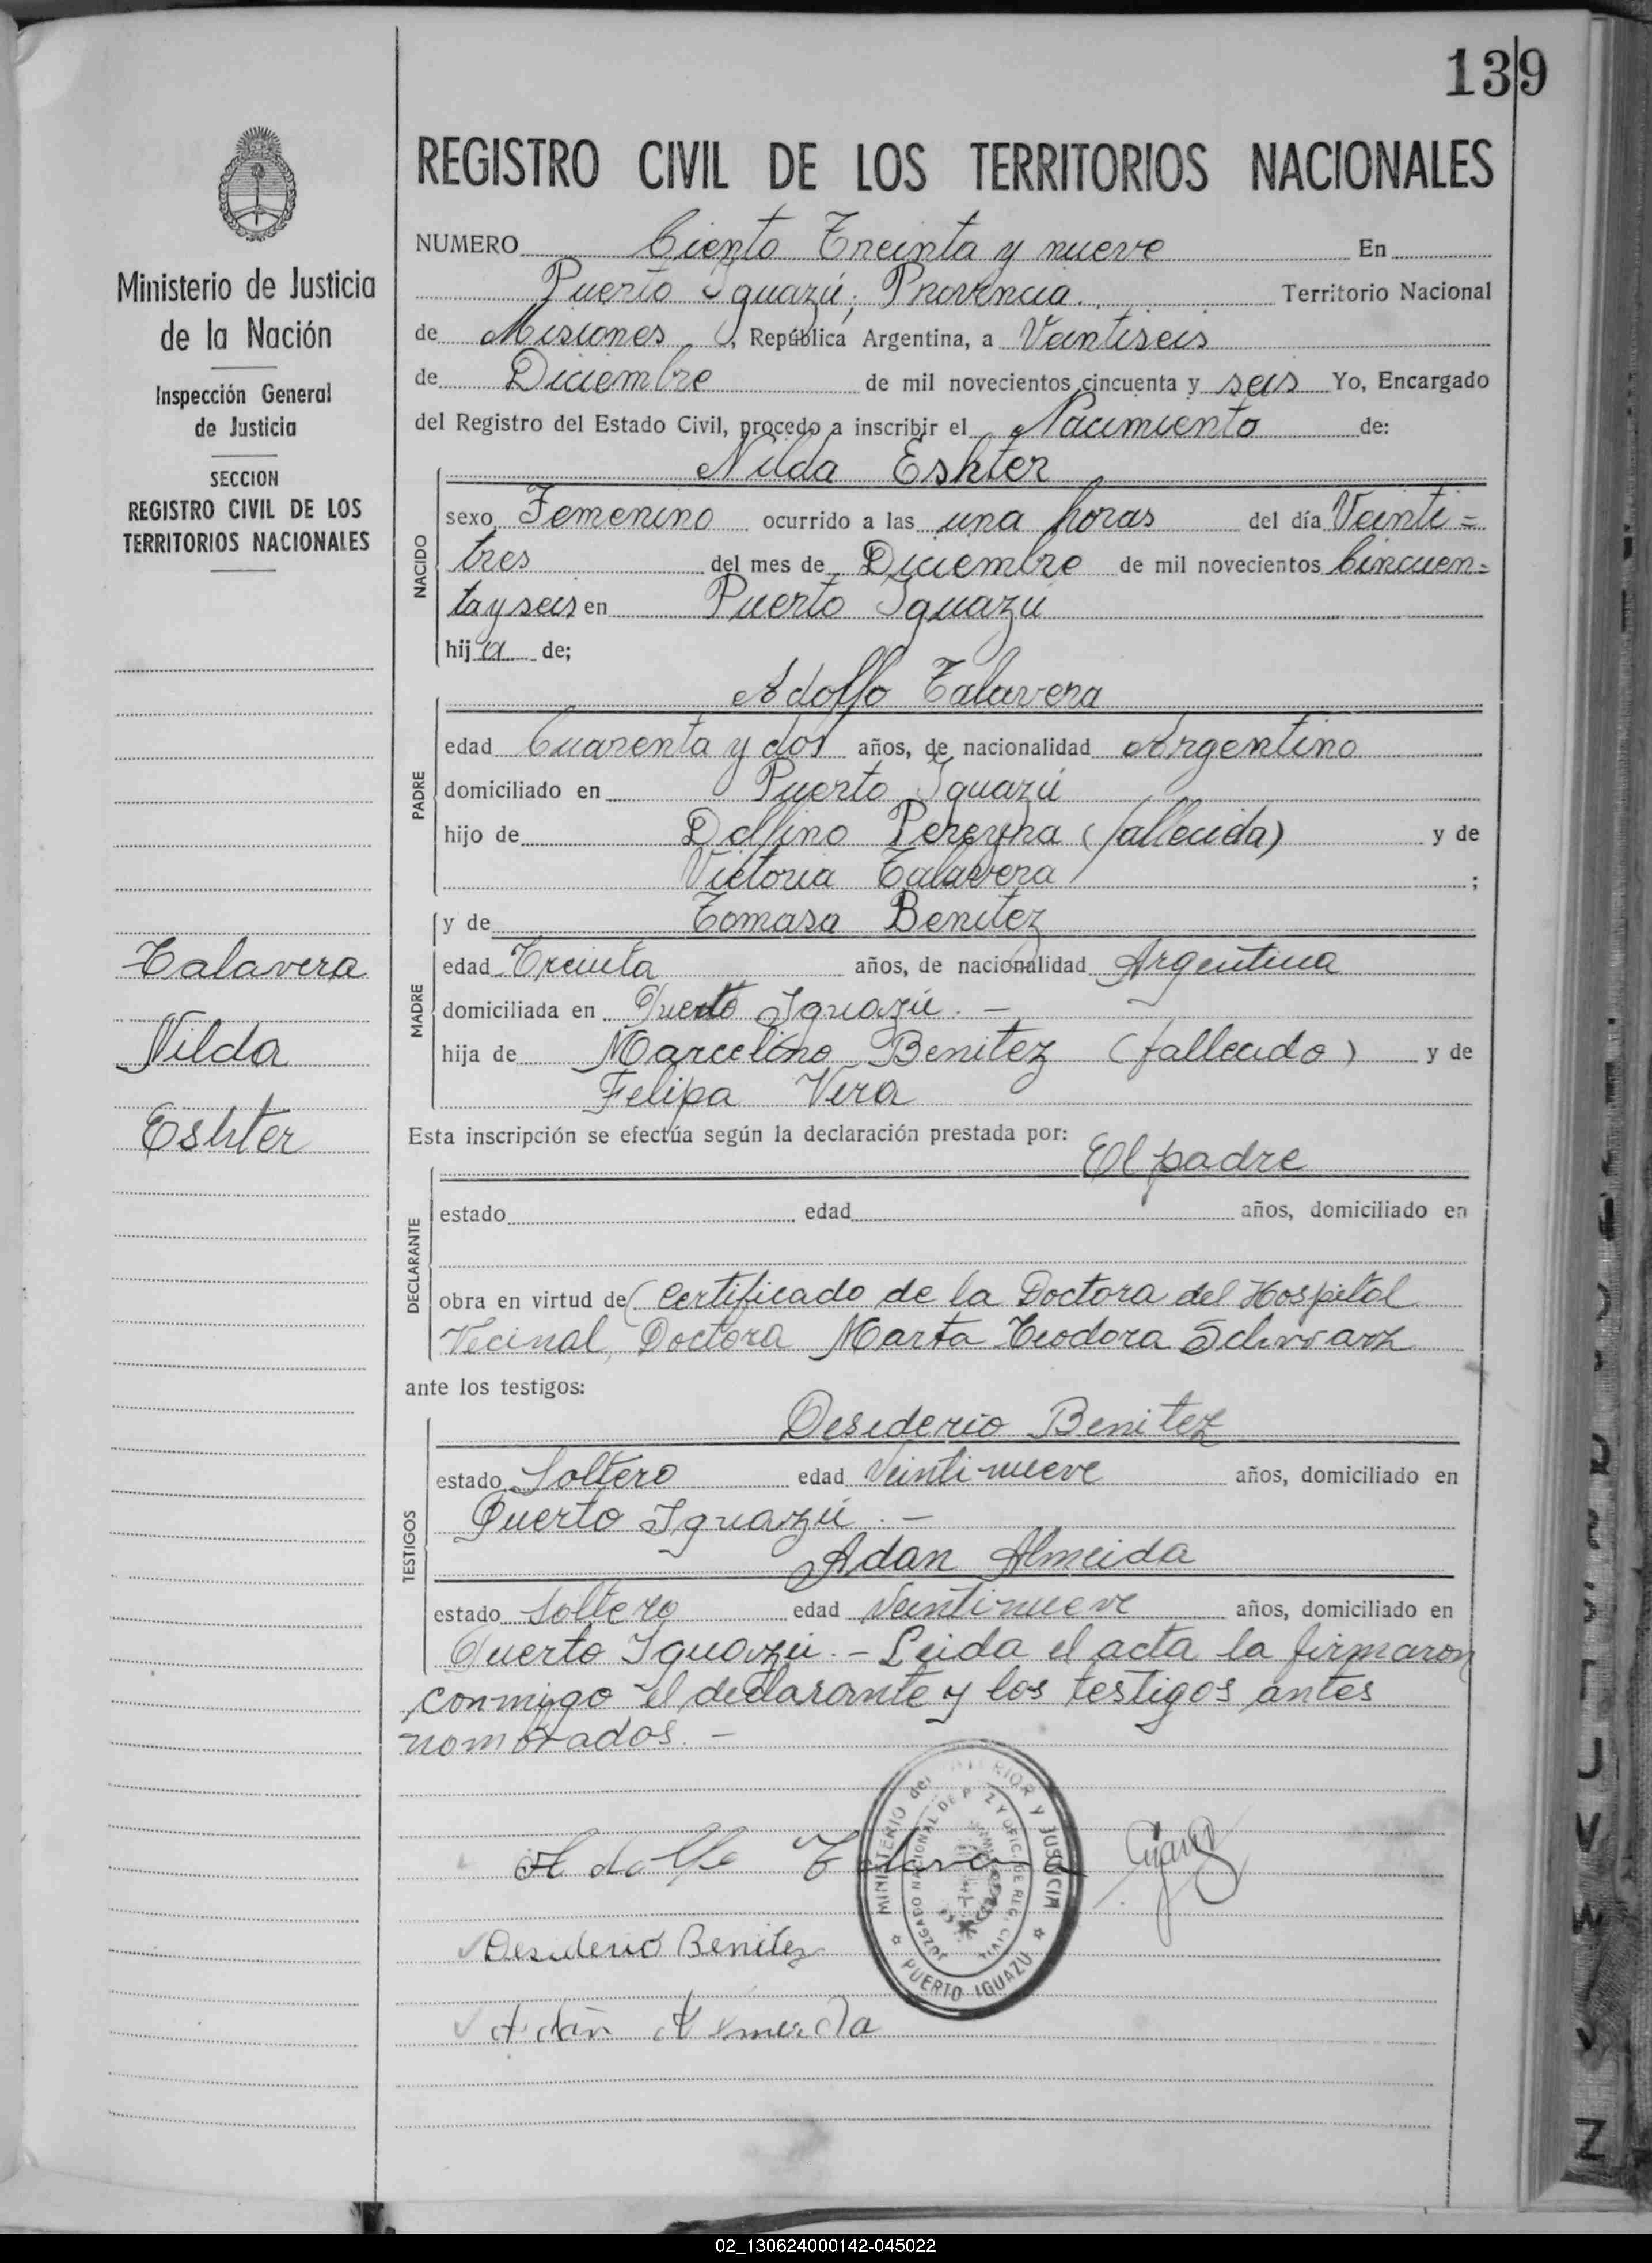 139
REGISTRO CIVIL DE LOS TERRITORIOS NACIONALES
Ministerio de Justicia
de la Nación
Inspección General
de Justicia
SECCION
REGISTRO CIVIL DE LOS
TERRITORIOS NACIONALES
Talavera
Nilda
Eshter
NUMERO Ciento Treinta y nueve En
Puerto Iguazú, Provincia. Territorio Nacional
de Misiones, República Argentina, a Veintiseis
de Diciembre de mil novecientos cincuenta y seis Yo, Encargado
del Registro del Estado Civil, procedo a inscribir el Nacimiento de:
Nilda Eshter
NACIDO
sexo Femenino ocurrido a las una horas del día Veinti=
tres del mes de Diciembre de mil novecientos Cincuen=
ta y seis en Puerto Iguazú
hija de;
Adolfo Talavera
PADRE
edad Cuarenta y dos años, de nacionalidad Argentino
domiciliado en Puerto Iguazú
hijo de Delfino Pereyra (fallecida) y de
Victoria Talavera ;
MADRE
y de Tomasa Benitez
edad Treinta años, de nacionalidad Argentina
domiciliada en Puerto Iguazú. -
hija de Marcelino Benitez (fallecido) y de
Felipa Vera
Esta inscripción se efectúa según la declaración prestada por:
El padre
DECLARANTE
estado edad años, domiciliado en
obra en virtud de (Certificado de la Doctora del Hospital
Vecinal, Doctora Marta Teodora Schwarz
ante los testigos:
TESTIGOS
Desiderio Benitez
estado Soltero edad Veintinueve años, domiciliado en
Puerto Iguazú. -
Adan Almeida
estado Soltero edad Veintinueve años, domiciliado en
Puerto Iguazú. - Leida el acta la firmaron
conmigo el declarante y los testigos antes
nombrados. -
Adolfo Talavera
MINISTERIO del INTERIOR Y JUSTICIA
JUZGADO NACIONAL DE PAZ Y OFIC. DE REG. CIVIL
PUERTO IGUAZU
Desiderio Benitez
Adán Almeida
02_130624000142-045022